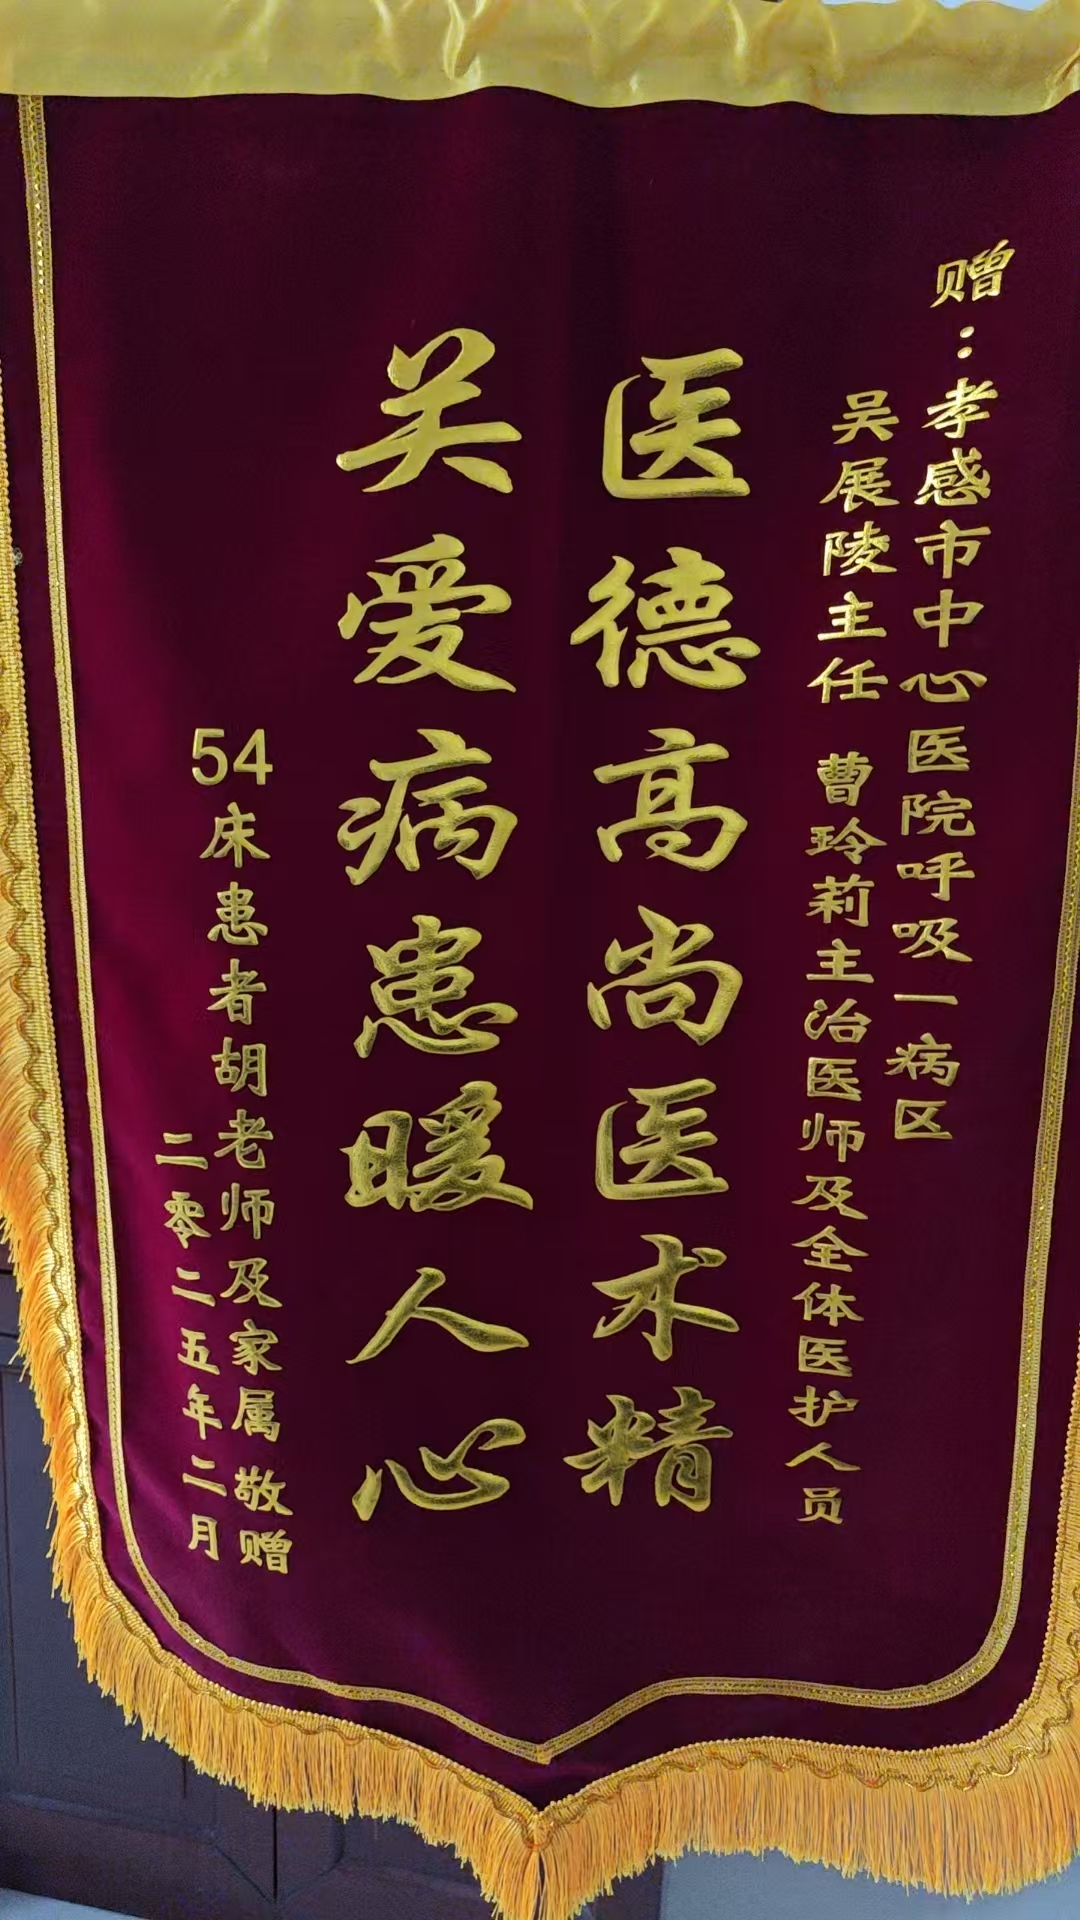 赠：孝感市中心医院呼吸一病区
吴展陵主任 曹玲莉主治医师及全体医护人员
医德高尚医术精
关爱病患暖人心
54床患者胡老师及家属 敬赠
二零二五年二月